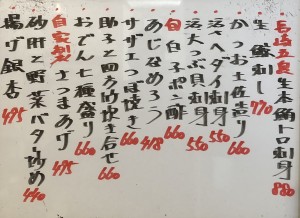 長崎五島生本鮪トロ刺身 880
生鯨刺し 770
かつお土佐造り 660
活ヘダイ刺身 550
活大つぶ貝刺身 550
旬白子ポン酢
あじなめろう 418
サザエつぼ焼き 660
助子と四方竹炊き合せ 660
おでん七種盛り 660
自家製さつまあげ 495
砂肝と野菜バター炒め 440
揚げ銀杏 495